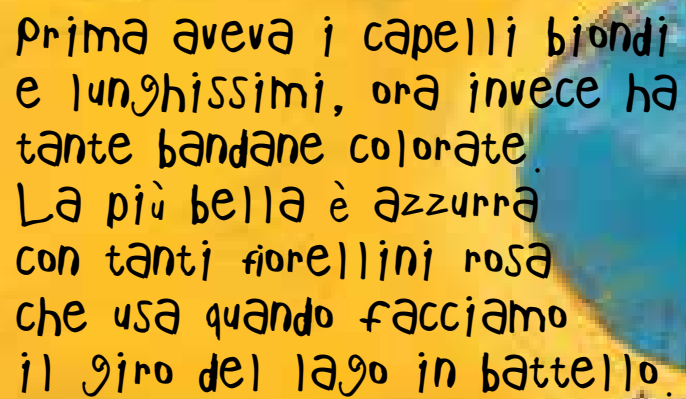 Prima aveva i capelli biondi
e lunghissimi, ora invece ha
tante bandane colorate.
La più bella è azzurra
con tanti fiorellini rosa
che usa quando facciamo
il giro del lago in battello.